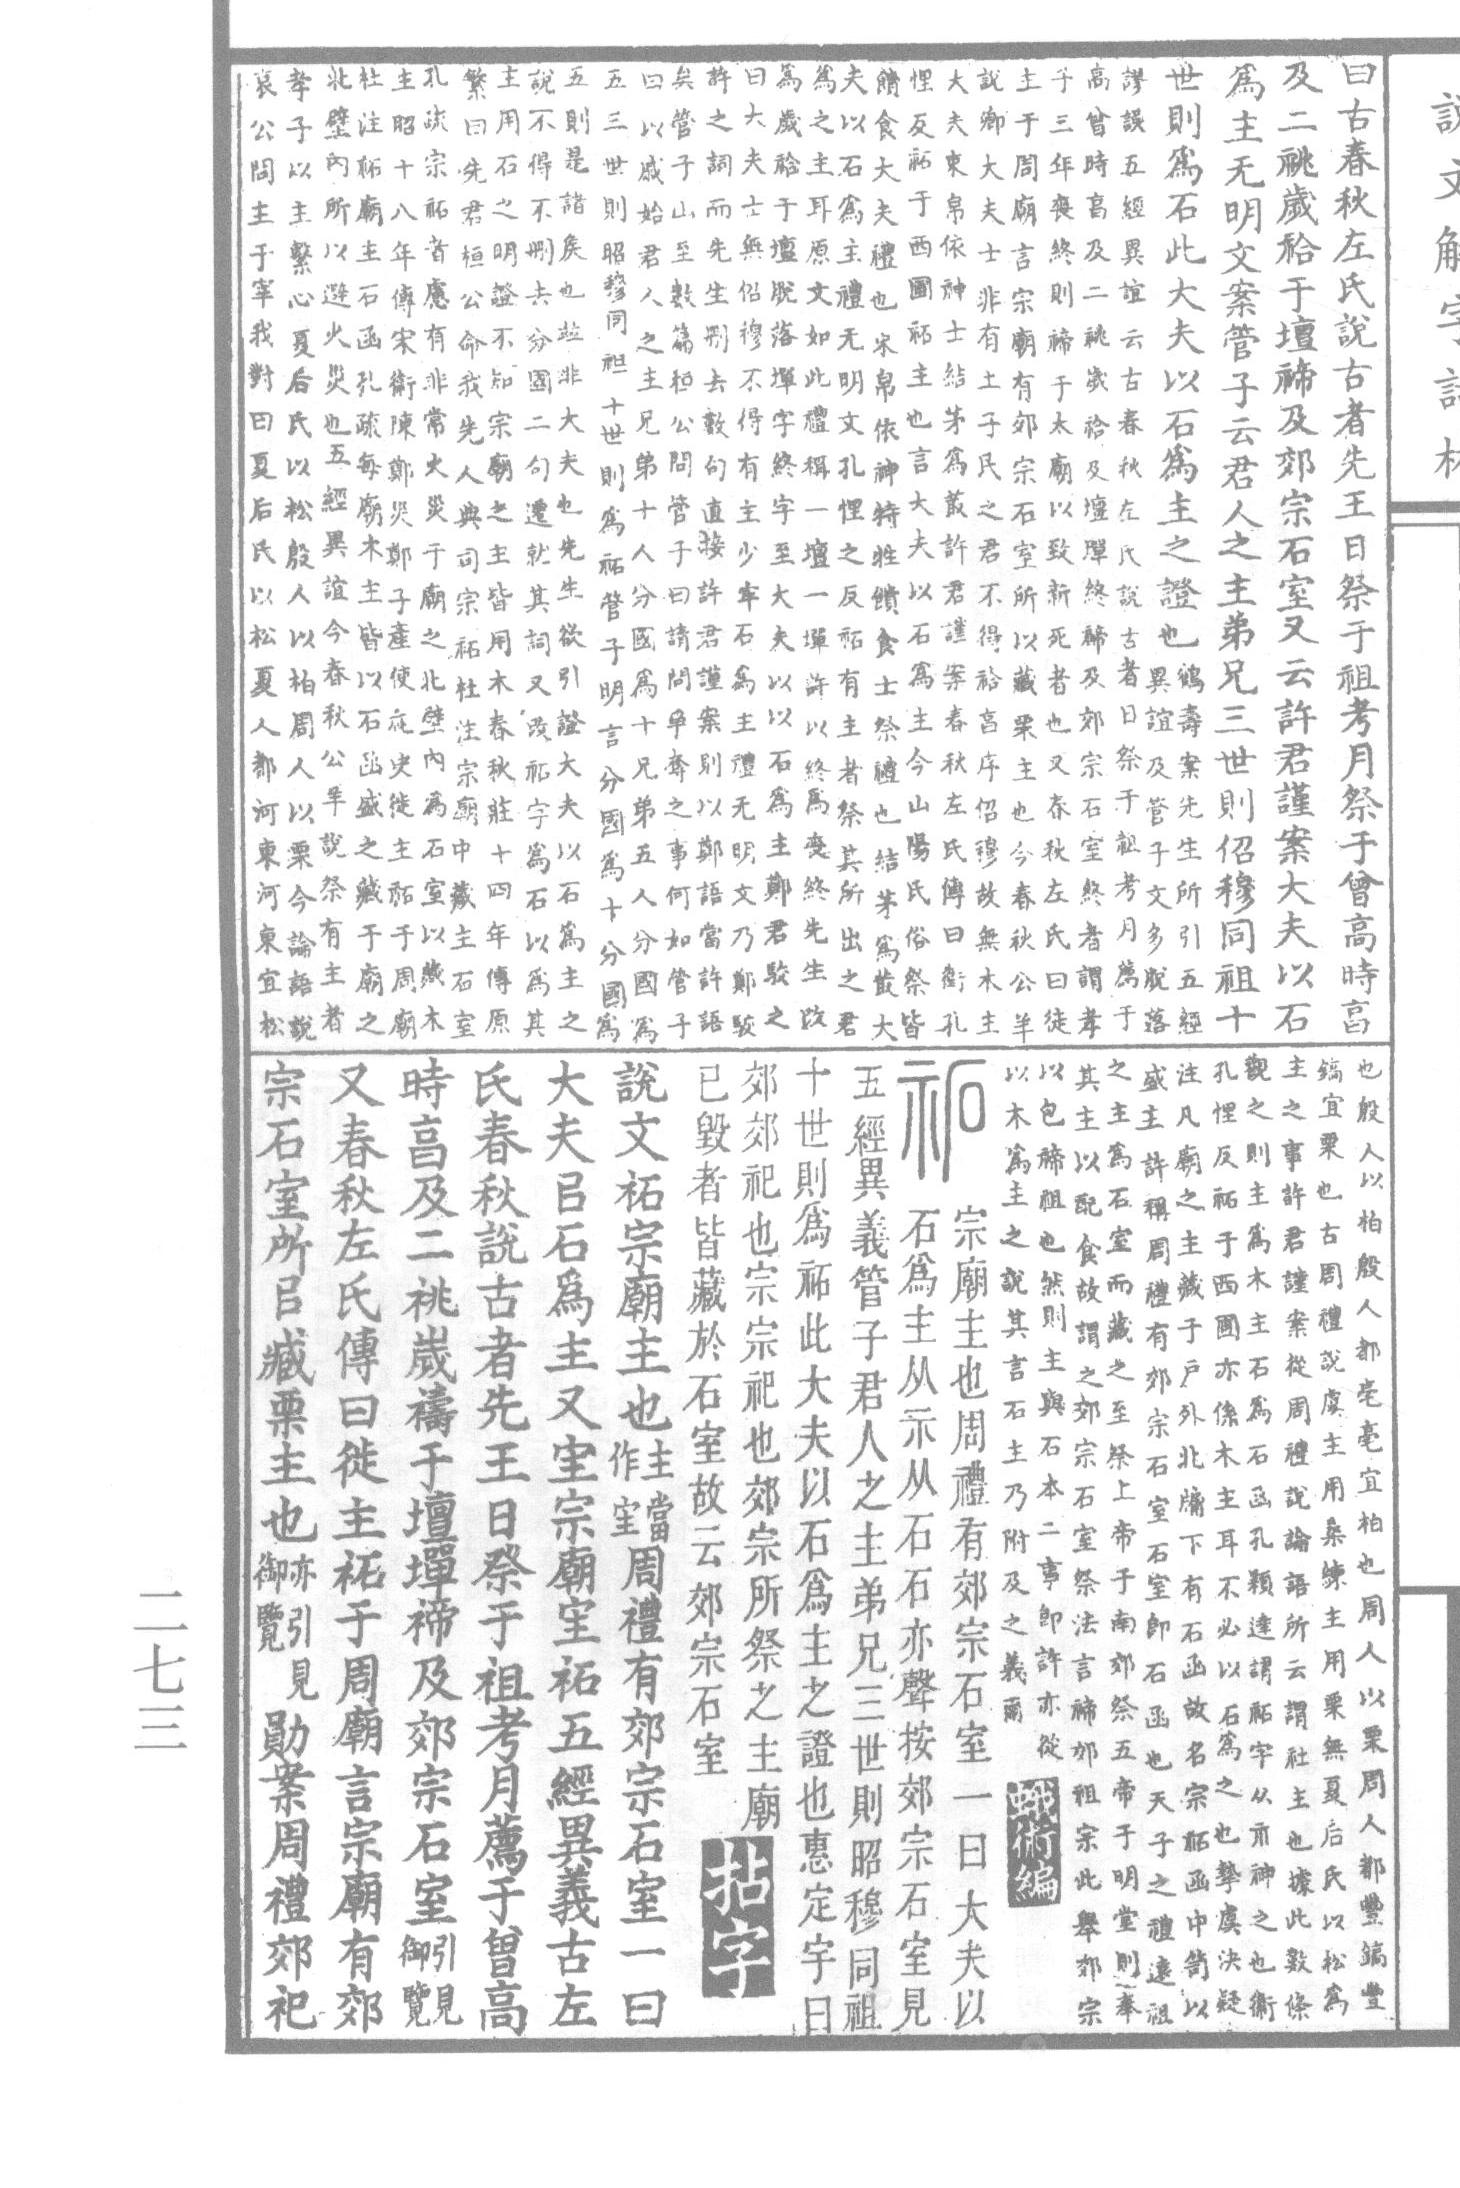 說文解字詁林
曰古春秋左氏說古者先王日祭于祖考月祭于曾高時亯
及二祧歲祫于壇禘及郊宗石室又云許君謹案大夫以石
爲主无明文案管子云君人之主弟兄三世則佋穆同祖十
世則爲石此大夫以石爲主之證也鶴壽案先生所引五經
異誼及管子文多脫落
謬誤五經異誼云古春秋左氏說古者日祭于祖考月薦于
高曾時亯及二祧歲祫及壇墠終禘及郊宗石室終者謂孝
子三年喪終則禘于太廟以致新死者也又春秋左氏曰徒
主于周廟言宗廟有郊宗石室所以藏栗主也今春秋公羊
說卿大夫士非有土子民之君不得祫亯序佋穆故無木主
大夫束帛依神士結茅爲菆許君謹案春秋左氏傳曰衛孔
悝反祏于西圃祏主也言大夫以石爲主今山陽民俗祭皆
饋食大夫禮也宋帛依神特牲饋食士祭禮也結茅爲菆大
夫以石爲主禮无明文孔悝之反祏有主者祭其所出之君
爲之主耳原文如此禮稱一壇一墠許以終爲喪終先生改
爲歲祫于壇脫落墠字終字至大夫以以石爲主鄭君駮之
曰大夫士無佋穆不得有主少牢石爲主禮无明文乃鄭駮
許之詞而先生刪去數句直接許君謹案則以鄭語當許語
矣管子山至數篇桓公問管子曰請問爭奪之事何如管子
曰以戚始君人之主兄弟十人分國爲十兄弟五人分國爲
五三世則昭穆同祖十世則爲祏管子明言分國爲十分國爲
五則是諸矦也竝非大夫也先生欲引證大夫以石爲主之
說不得不刪去分國二句遷就其詞又改祏字爲石以爲其
主用石之明證不知宗廟之主皆用木春秋莊十四年傳原
繁曰先君桓公命我先人典司宗祏杜注宗廟中藏主石室
孔疏宗祏者慮有非常火災于廟之北壁內爲石室以藏木
主昭十八年傳宋衛陳鄭災鄭子產使祝史徙主祏于周廟
杜注祏廟主石函孔疏每廟木主皆以石函盛之藏于廟之
北壁內所以避火災也五經異誼今春秋公羊說祭有主者
孝子以主繫心夏后氏以松殷人以柏周人以栗今論語說
哀公問主于宰我對曰夏后氏以松夏人都河東河東宜松
也殷人以柏殷人都亳亳宜柏也周人以栗周人都豐鎬豐
鎬宜栗也古周禮說虞主用桑練主用栗無夏后氏以松爲
主之事許君謹案從周禮說論語所云謂社主也據此數條
觀之則主爲木主石爲石函孔穎達謂祏字从示神之也衛
孔悝反祏于西圃亦係木主耳不必以石爲之也摯虞決疑
注凡廟之主藏于戶外北牖下有石函故名宗祏函中笥以
盛主許稱周禮有郊宗石室石室即石函也天子之禮遠祖
之主爲石室而藏之至祭上帝于南郊祭五帝于明堂則奉
其主以配食故謂之郊宗石室祭法言禘郊祖宗此舉郊宗
以包禘祖也然則主與石本二事即許亦從
以木爲主之說其言石主乃附及之義爾
蛾術編
祏
宗廟主也周禮有郊宗石室一曰大夫以
石爲主从示从石石亦聲按郊宗石室見
五經異義管子君人之主弟兄三世則昭穆同祖
十世則爲祏此大夫以石爲主之證也惠定宇曰
郊郊祀也宗宗祀也郊宗所祭之主廟
已毀者皆藏於石室故云郊宗石室
拈字
說文祏宗廟主也主當作宔周禮有郊宗石室一曰
大夫㠯石爲主又宔宗廟宔祏五經異義古左
氏春秋說古者先王日祭于祖考月薦于曾高
時亯及二祧歲禱于壇墠禘及郊宗石室引見御覽
又春秋左氏傳曰徙主祏于周廟言宗廟有郊
宗石室所㠯臧栗主也亦引見御覽勛案周禮郊祀
二七三